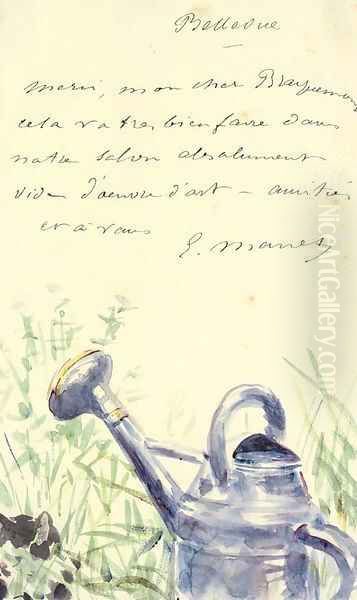 Bellevue
merci, mon cher Bracquemond
cela va très bien faire dans
notre salon absolument
vide d'œuvre d'art – amitiés
et à vous
E. Manet
NiceArtGallery.com